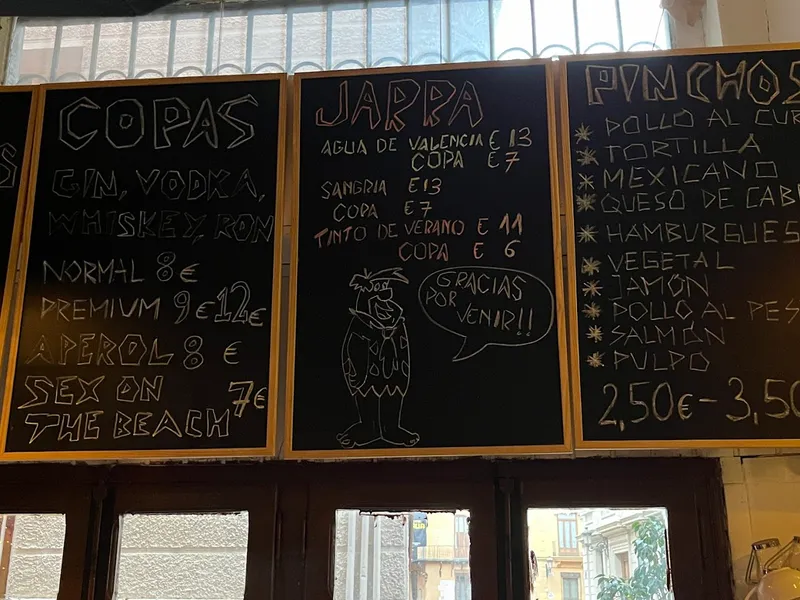 COPAS
GIN, VODKA,
WHISKEY, RON
NORMAL 8€
PREMIUM 9€ 12€
APEROL 8 €
SEX ON
THE BEACH 7€
JARRA
AGUA DE VALENCIA € 13
COPA € 7
SANGRIA €13
COPA €7
TINTO DE VERANO € 11
COPA € 6
GRACIAS
POR
VENIR!!
PINCHOS
POLLO AL CUR
TORTILLA
MEXICANO
QUESO DE CAB
HAMBURGUES
VEGETAL
JAMÓN
POLLO AL PES
SALMÓN
PULPO
2,50€ - 3,50